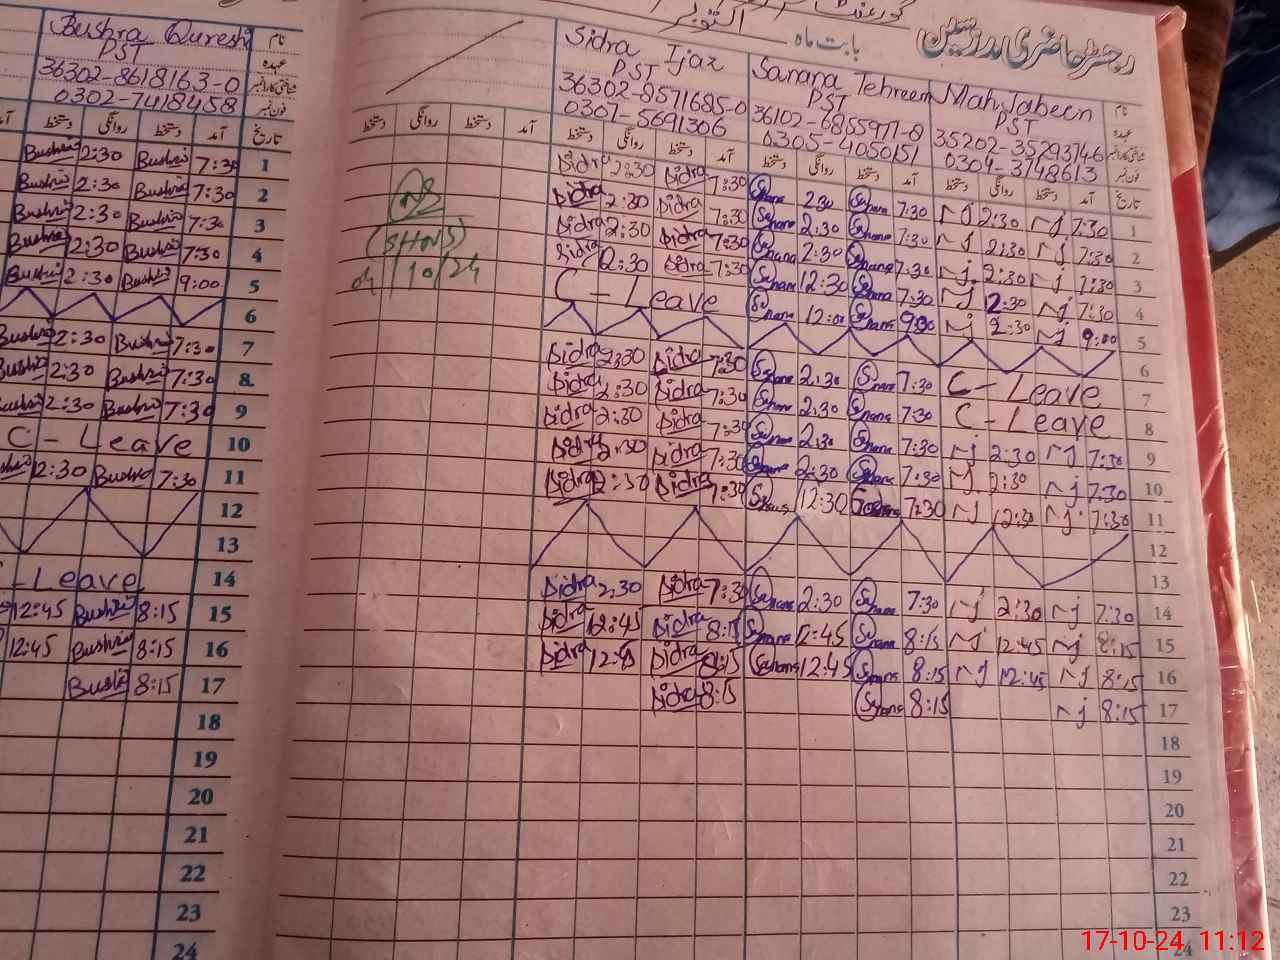 Bushra Qureshi نام
PST عہدہ
36302-8618163-0 شناختی کارڈ نمبر
0302-7418458 فون نمبر
دستخط روانگی دستخط آمد تاریخ
Bushra 2:30 Bushra 7:30 1
Bushra 2:30 Bushra 7:30 2
Bushra 2:30 Bushra 7:30 3
Bushra 2:30 Bushra 7:30 4
Bushra 2:30 Bushra 9:00 5
6
Bushra 2:30 Bushra 7:30 7
Bushra 2:30 Bushra 7:30 8
Bushra 2:30 Bushra 7:30 9
C - Leave 10
Bushra 12:30 Bushra 7:30 11
12
13
C-Leave 14
12:45 Bushra 8:15 15
12:45 Bushra 8:15 16
Bushra 8:15 17
18
19
20
21
22
23
24
رجسٹر حاضری مدرسین
بابت ماہ اکتوبر
Sidra Ijaz Sanana Tehreem Mah Jabeen نام
PST PST PST عہدہ
36302-8571685-0 36102-6855977-8 35202-35293746 شناختی کارڈ نمبر
0307-5691306 0305-4050151 0304-3148613 فون نمبر
دستخط روانگی دستخط آمد دستخط روانگی دستخط آمد دستخط روانگی دستخط آمد دستخط روانگی دستخط آمد تاریخ
(SHNS)
04/10/24
Sidra 2:30 Sidra 7:30 Sanana 2:30 Sanana 7:30 nj 2:30 nj 7:30 1
Sidra 2:30 Sidra 7:30 Sanana 2:30 Sanana 7:30 nj 2:30 nj 7:30 2
Sidra 2:30 Sidra 7:30 Sanana 2:30 Sanana 7:30 nj 2:30 nj 7:30 3
Sidra 12:30 Sidra 7:30 Sanana 12:30 Sanana 7:30 nj 2:30 nj 7:30 4
C - Leave Sanana 12:00 Sanana 9:00 nj 2:30 nj 9:00 5
6
Sidra 2:30 Sidra 7:30 Sanana 2:30 Sanana 7:30 C - Leave 7
Sidra 2:30 Sidra 7:30 Sanana 2:30 Sanana 7:30 C - Leave 8
Sidra 2:30 Sidra 7:30 Sanana 2:30 Sanana 7:30 nj 2:30 nj 7:30 9
Sidra 2:30 Sidra 7:30 Sanana 2:30 Sanana 7:30 nj 2:30 nj 7:30 10
Sidra 12:30 Sidra 7:30 Sanana 12:30 Sanana 7:30 nj 12:30 nj 7:30 11
12
13
Sidra 2:30 Sidra 7:30 Sanana 2:30 Sanana 7:30 nj 2:30 nj 7:30 14
Sidra 12:45 Sidra 8:15 Sanana 12:45 Sanana 8:15 nj 12:45 nj 8:15 15
Sidra 12:45 Sidra 8:15 Sanana 12:45 Sanana 8:15 nj 12:45 nj 8:15 16
Sidra 8:15 Sanana 8:15 nj 8:15 17
18
19
20
21
22
23
24
17-10-24, 11:12